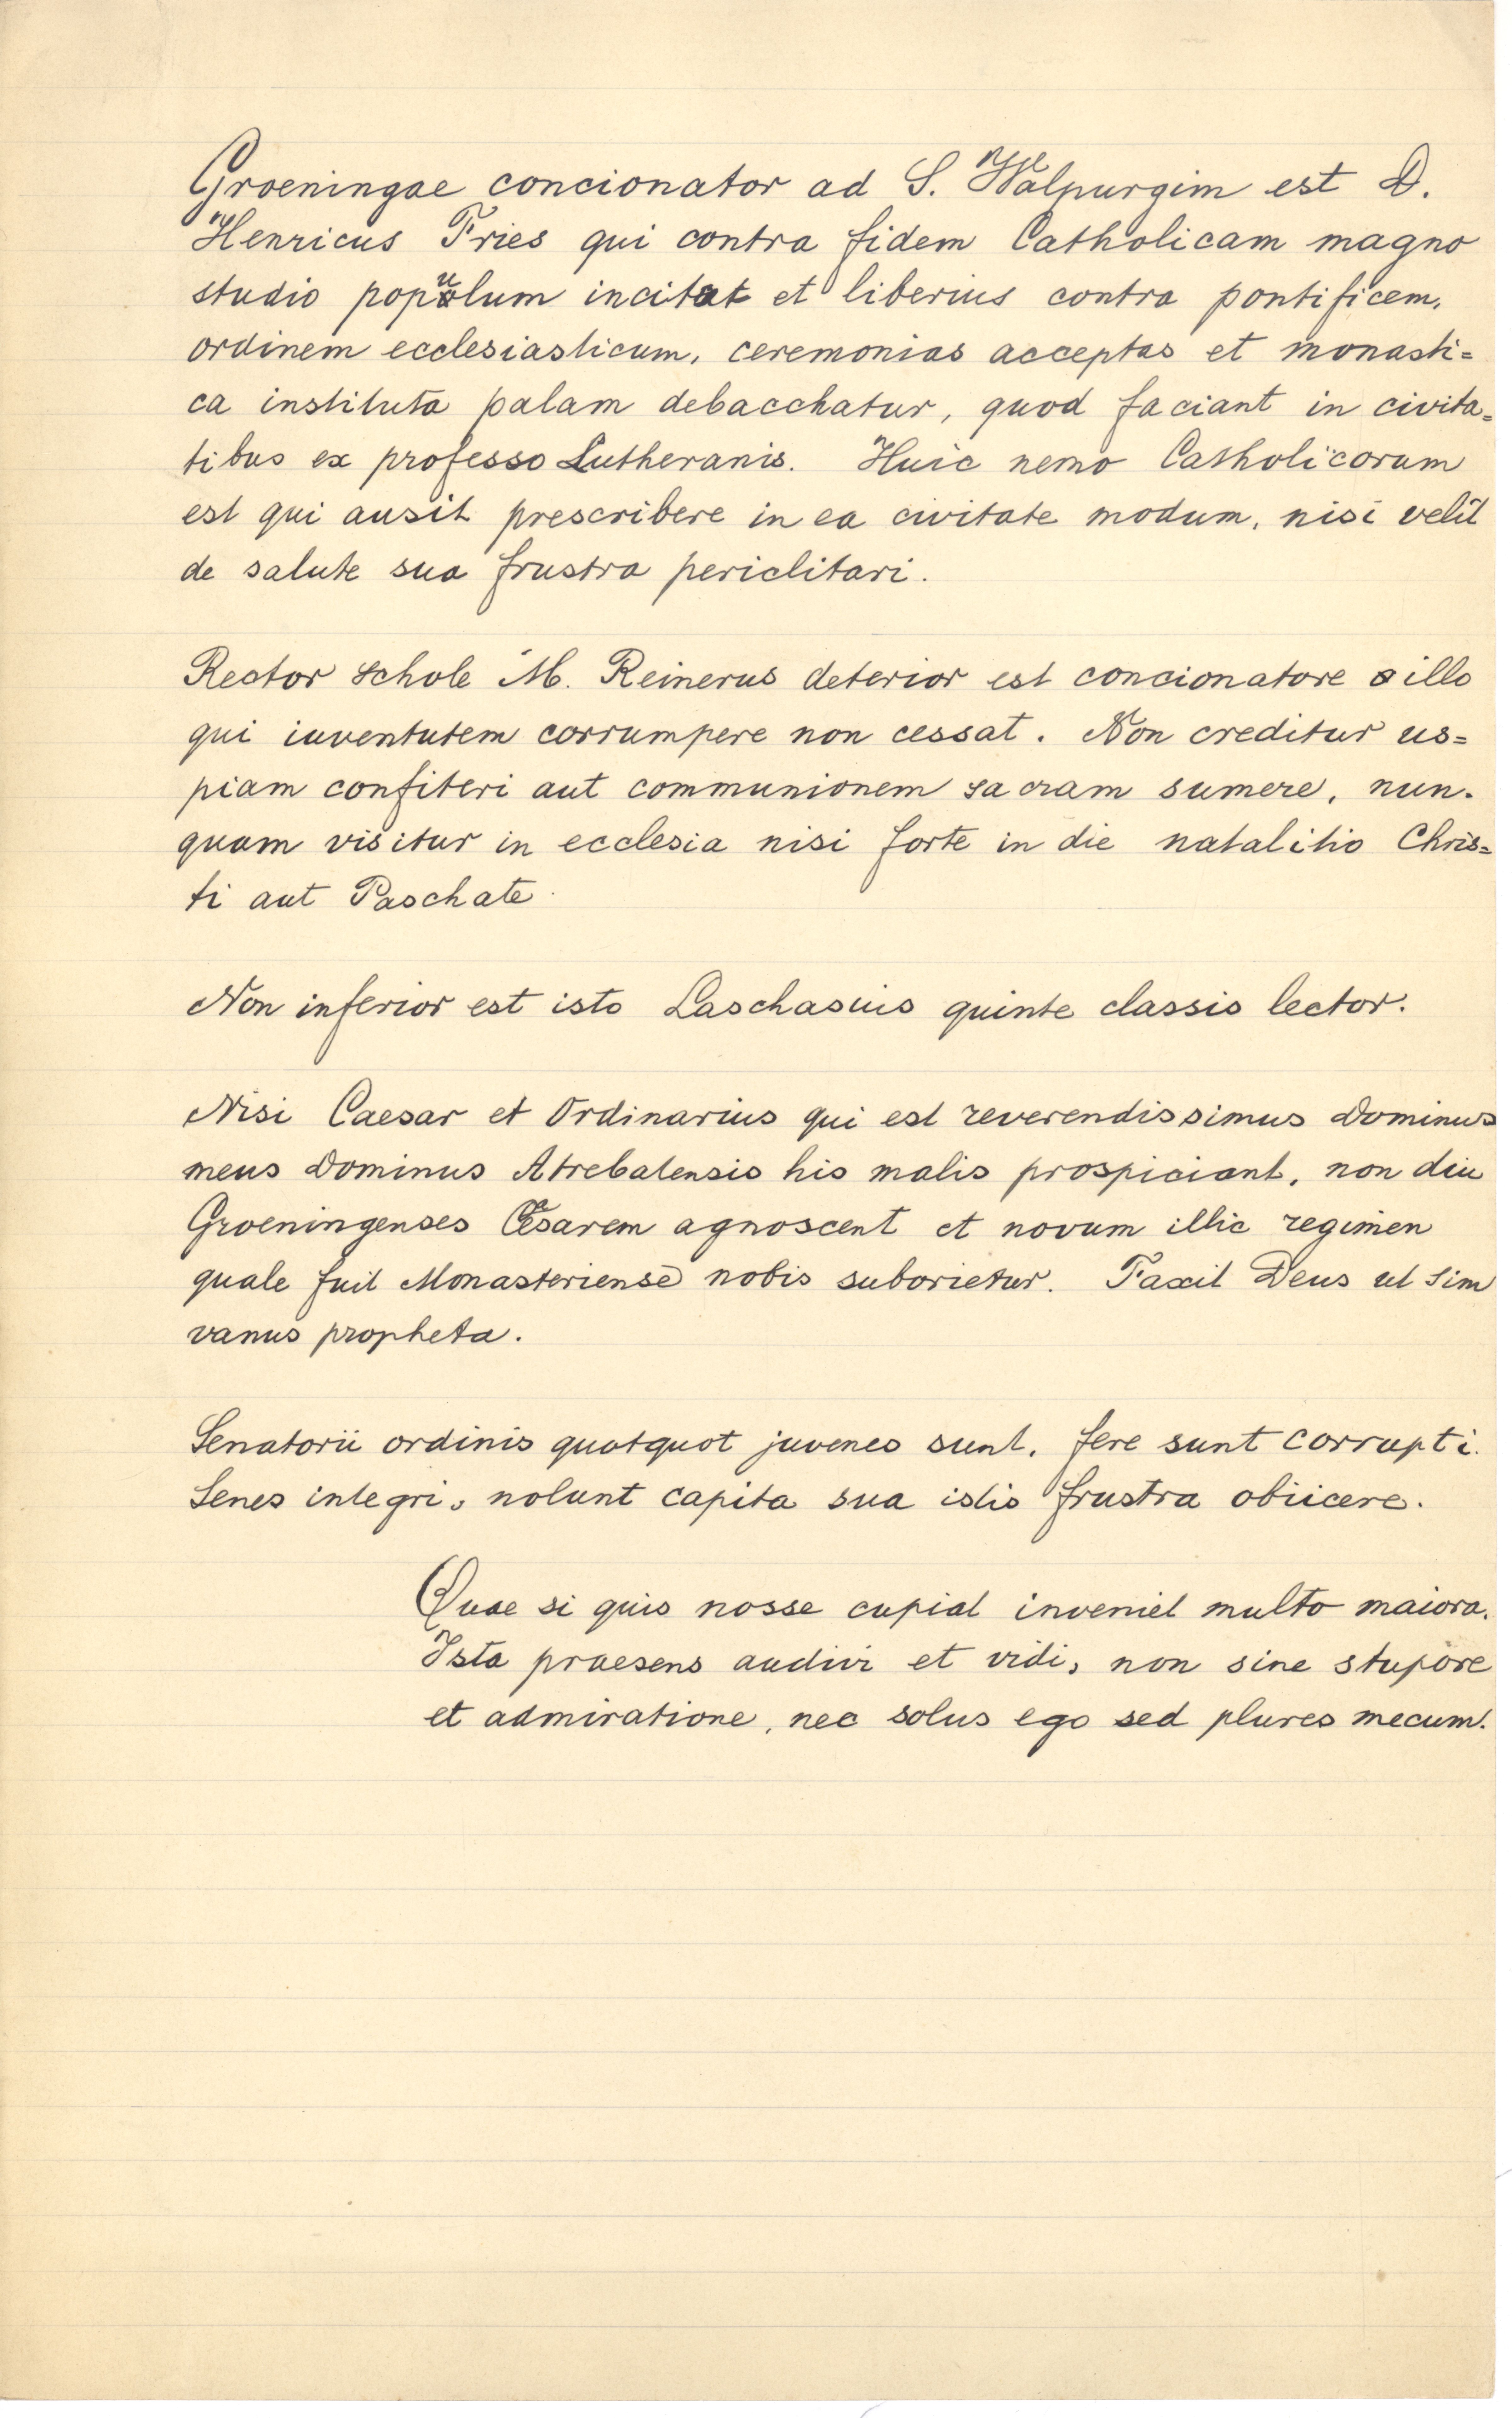 Groeningae concionator ad S. Walpurgim est D.
Henricus Fries qui contra fidem Catholicam magno
studio populum incitat et liberius contra pontificem,
ordinem ecclesiasticum, ceremonias acceptas et monasti=
ca instituta palam debacchatur, quod faciant in civita=
tibus ex professo Lutheranis. Huic nemo Catholicorum
est qui ausit prescribere in ea civitate modum, nisi velit
de salute sua frustra periclitari.
Rector schole M. Reinerus deterior est concionatore illo
qui iuventutem corrumpere non cessat. Non creditur us=
piam confiteri aut communionem sacram sumere, nun-
quam visitur in ecclesia nisi forte in die natalitio Chris=
ti aut Paschate
Non inferior est isto Laschasius quinte classis lector.
Nisi Caesar et Ordinarius qui est reverendissimus Dominus
meus Dominus Atrebatensis his malis prospiciant, non diu
Groeningenses Cesarem agnoscent et novum illic regimen
quale fuit Monasteriense nobis suborietur. Faxit Deus ut sim
vanus propheta.
Senatorii ordinis quotquot juvenes sunt, fere sunt corrupti.
Senes integri, nolunt capita sua istis frustra obiicere.
Quae si quis nosse cupiat inveniet multo maiora.
Ista praesens audivi et vidi, non sine stupore
et admiratione, nec solus ego sed plures mecum.